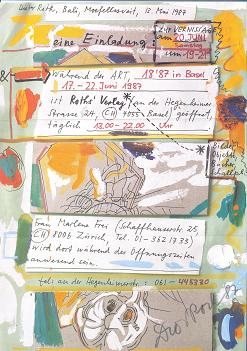 Dieter Roth, Bali, Mosfellssveit, 13. Mai 1987
eine Einladung
zur VERNISSAGE
am 20. JUNI
Samstag
um 19-21
Während der ART, 18'87 in Basel
17. - 22. Juni 1987
ist Roths' Verlag* an der Hegenheimer
Strasse 124, (CH) 4055 Basel geöffnet,
täglich 13.00 - 22.00 Uhr
*
Bilder
Objekte
Bücher
Schallpl.
Frau Marlene Frei (Schaffhauserstr. 25
(CH) 8006 Zürich, Tel. 01-362 17 33)
wird dort während der Öffnungszeiten
anwesend sein.
tel: an der Hegenheimerstr.: 061-445330